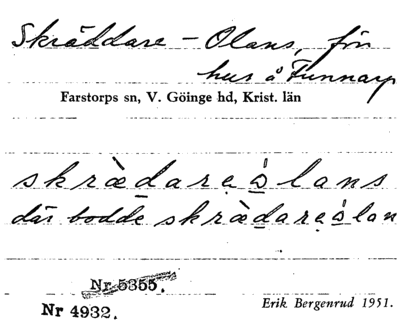 Skräddare - Olans, för
hus å Funnarp
Farstorps sn, V. Göinge hd, Krist. län
skrädare ɷ́lans
där bodde skrädare ɷ́lan
Nr 5355.
Nr 4932.
Erik Bergenrud 1951.